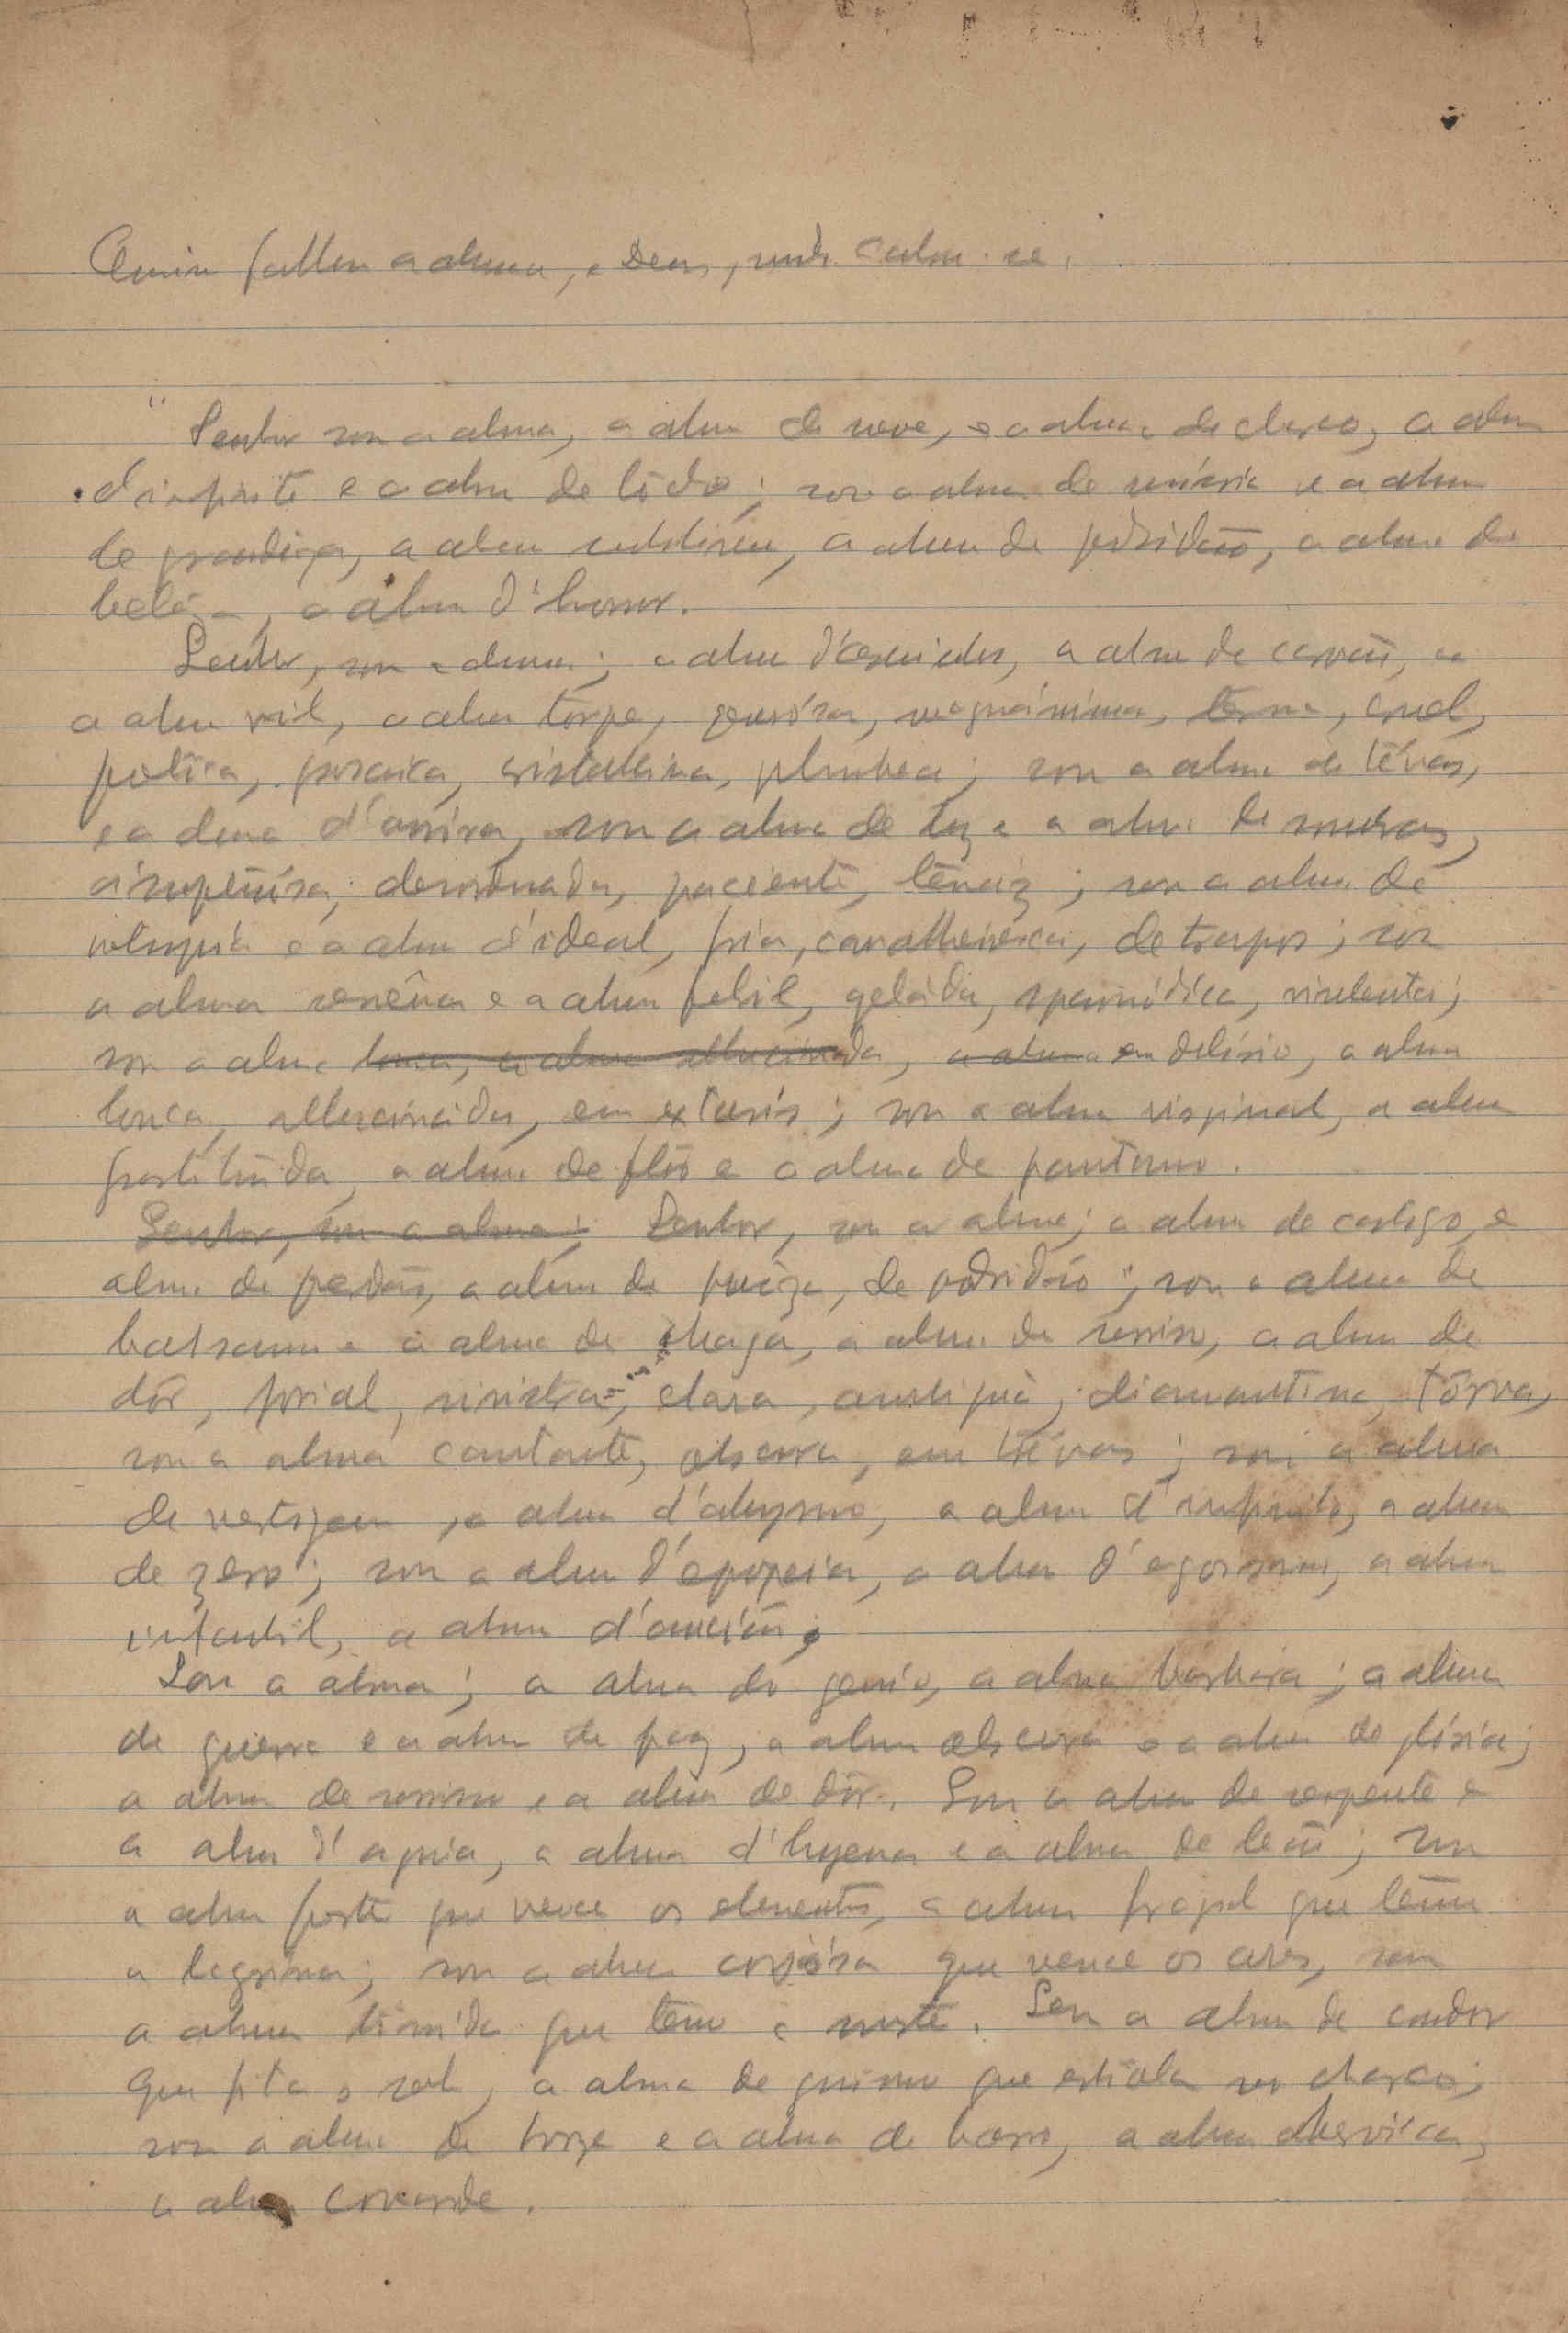 Assim fallou a alma, a Deus,
"Senhor sou a alma, a alma de neve, e a alma de charco, a alma
d'infinito e a alma de lôdo; sou a alma de miséria e a alma
de grandeza, a alma sublime, a alma de podridão, a alma de
belêza, a alma d'horror.
Senhor, sou a alma; a alma a alma de carvão,
a alma vil, a alma torpe, generósa, magnánima, terna, cruel,
poética, prosaica, cristallina, plumbea; sou a alma de trévas,
e a alma d'aurora, sou a alma de luz e a alma de
desordenada, paciente, tenáz; sou a alma de
volupia e a alma d'ideal, fria, cavalheiresca, de trapos; sou
a alma serêna e a alma febril, geláda, spasmódica, virulenta;
sou a alma louca, a alma allucinada, a alma em delírio, a alma
louca, allucináda, em extasis; sou a alma virginal, a alma
prostituida, a alma de flôr e a alma de pantano.
Senhor, sou a alma; Senhor, sou a alma; a alma de castigo, e
alma de perdão, a alma de purêza, de podridão; sou a alma de
balsamo e a alma de chaga, a alma de sorriso, a alma de
dôr, jovial, sinistra, clara, diamantina, tôrva,
sou a alma cantante, obscura, em trévas; sou a alma
de vertigem, a alma d'abysmo, a alma d'infinito, a alma
de zero; sou a alma d'epopeia, a alma d'egoismo, a alma
infantil, a alma d'ancião;
Sou a alma; a alma do genio, a alma barbara; a alma
de guerra e a alma de paz, a alma obscura e a alma de glória;
a alma de sorriso e a alma de dôr. Sou a alma de serpente e
a alma d'aguia, a alma d'hyena e a alma de leão; sou
a alma forte que vence os elementos, a alma fragil que teme
a lagrima; sou a alma corajósa que vence os ares, sou
a alma timida que teme a morte. Sou a alma de condor
que fita o sol, a alma de que estiola no charco;
sou a alma de bronze e a alma de barro, a alma
a alma covarde.